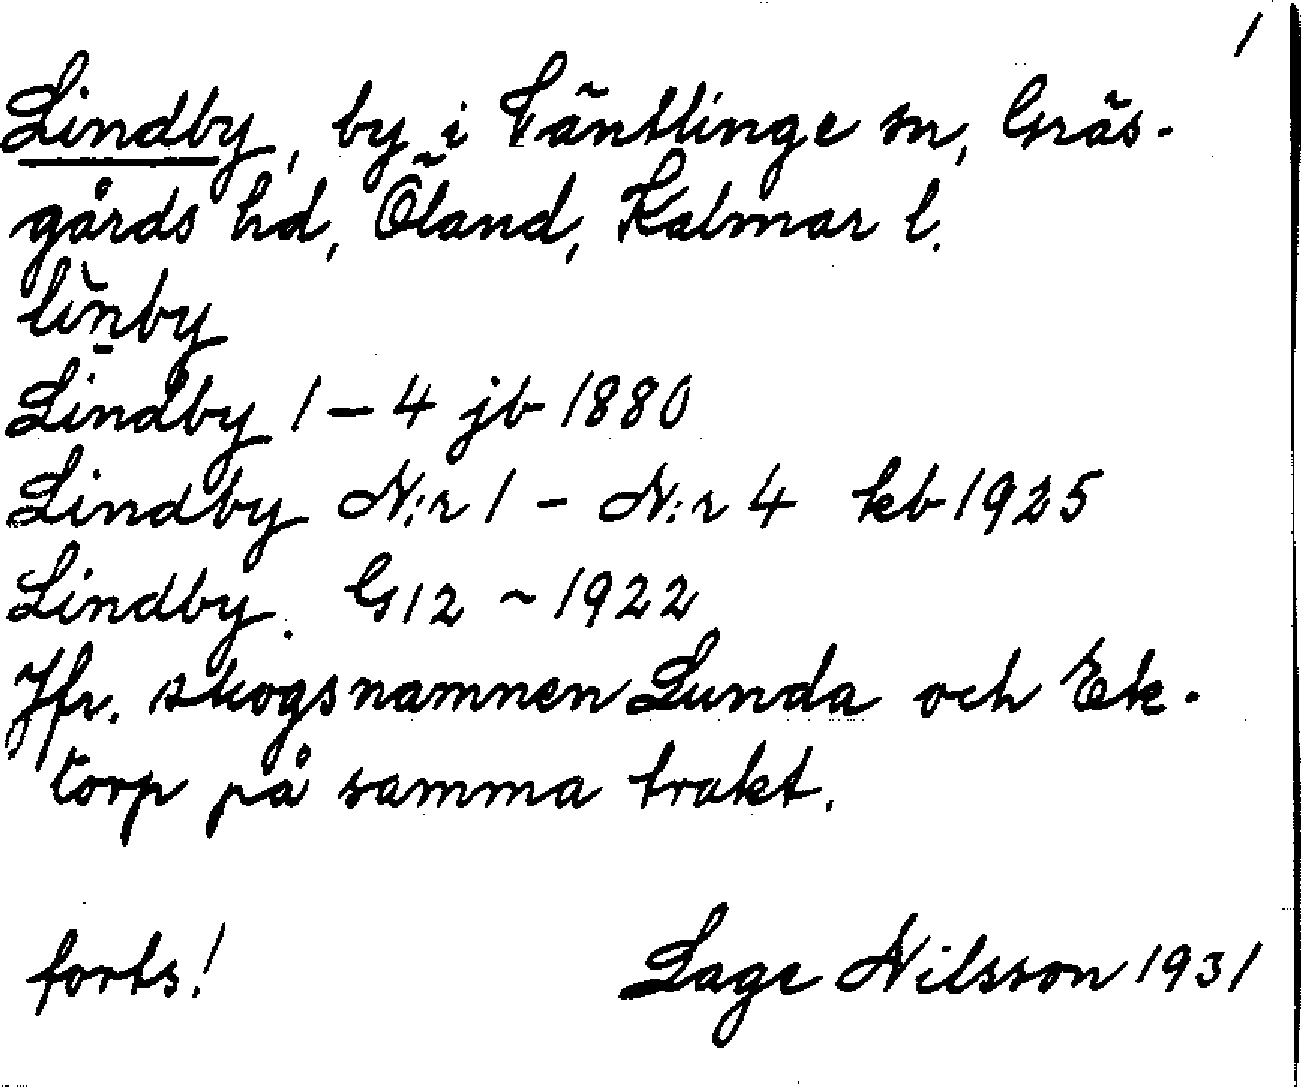 1
Lindby, by i Väntlinge sn, Gräs-
gårds hd, Öland, Kalmar l.
lìn̠by
Lindby 1-4 jb 1880
Lindby N:r 1 - N:r 4 kb 1925
Lindby. G12 ~ 1922
Jfr. skogsnamnen Lunda och Ek-
torp på samma trakt.
forts! Lage Nilsson 1931